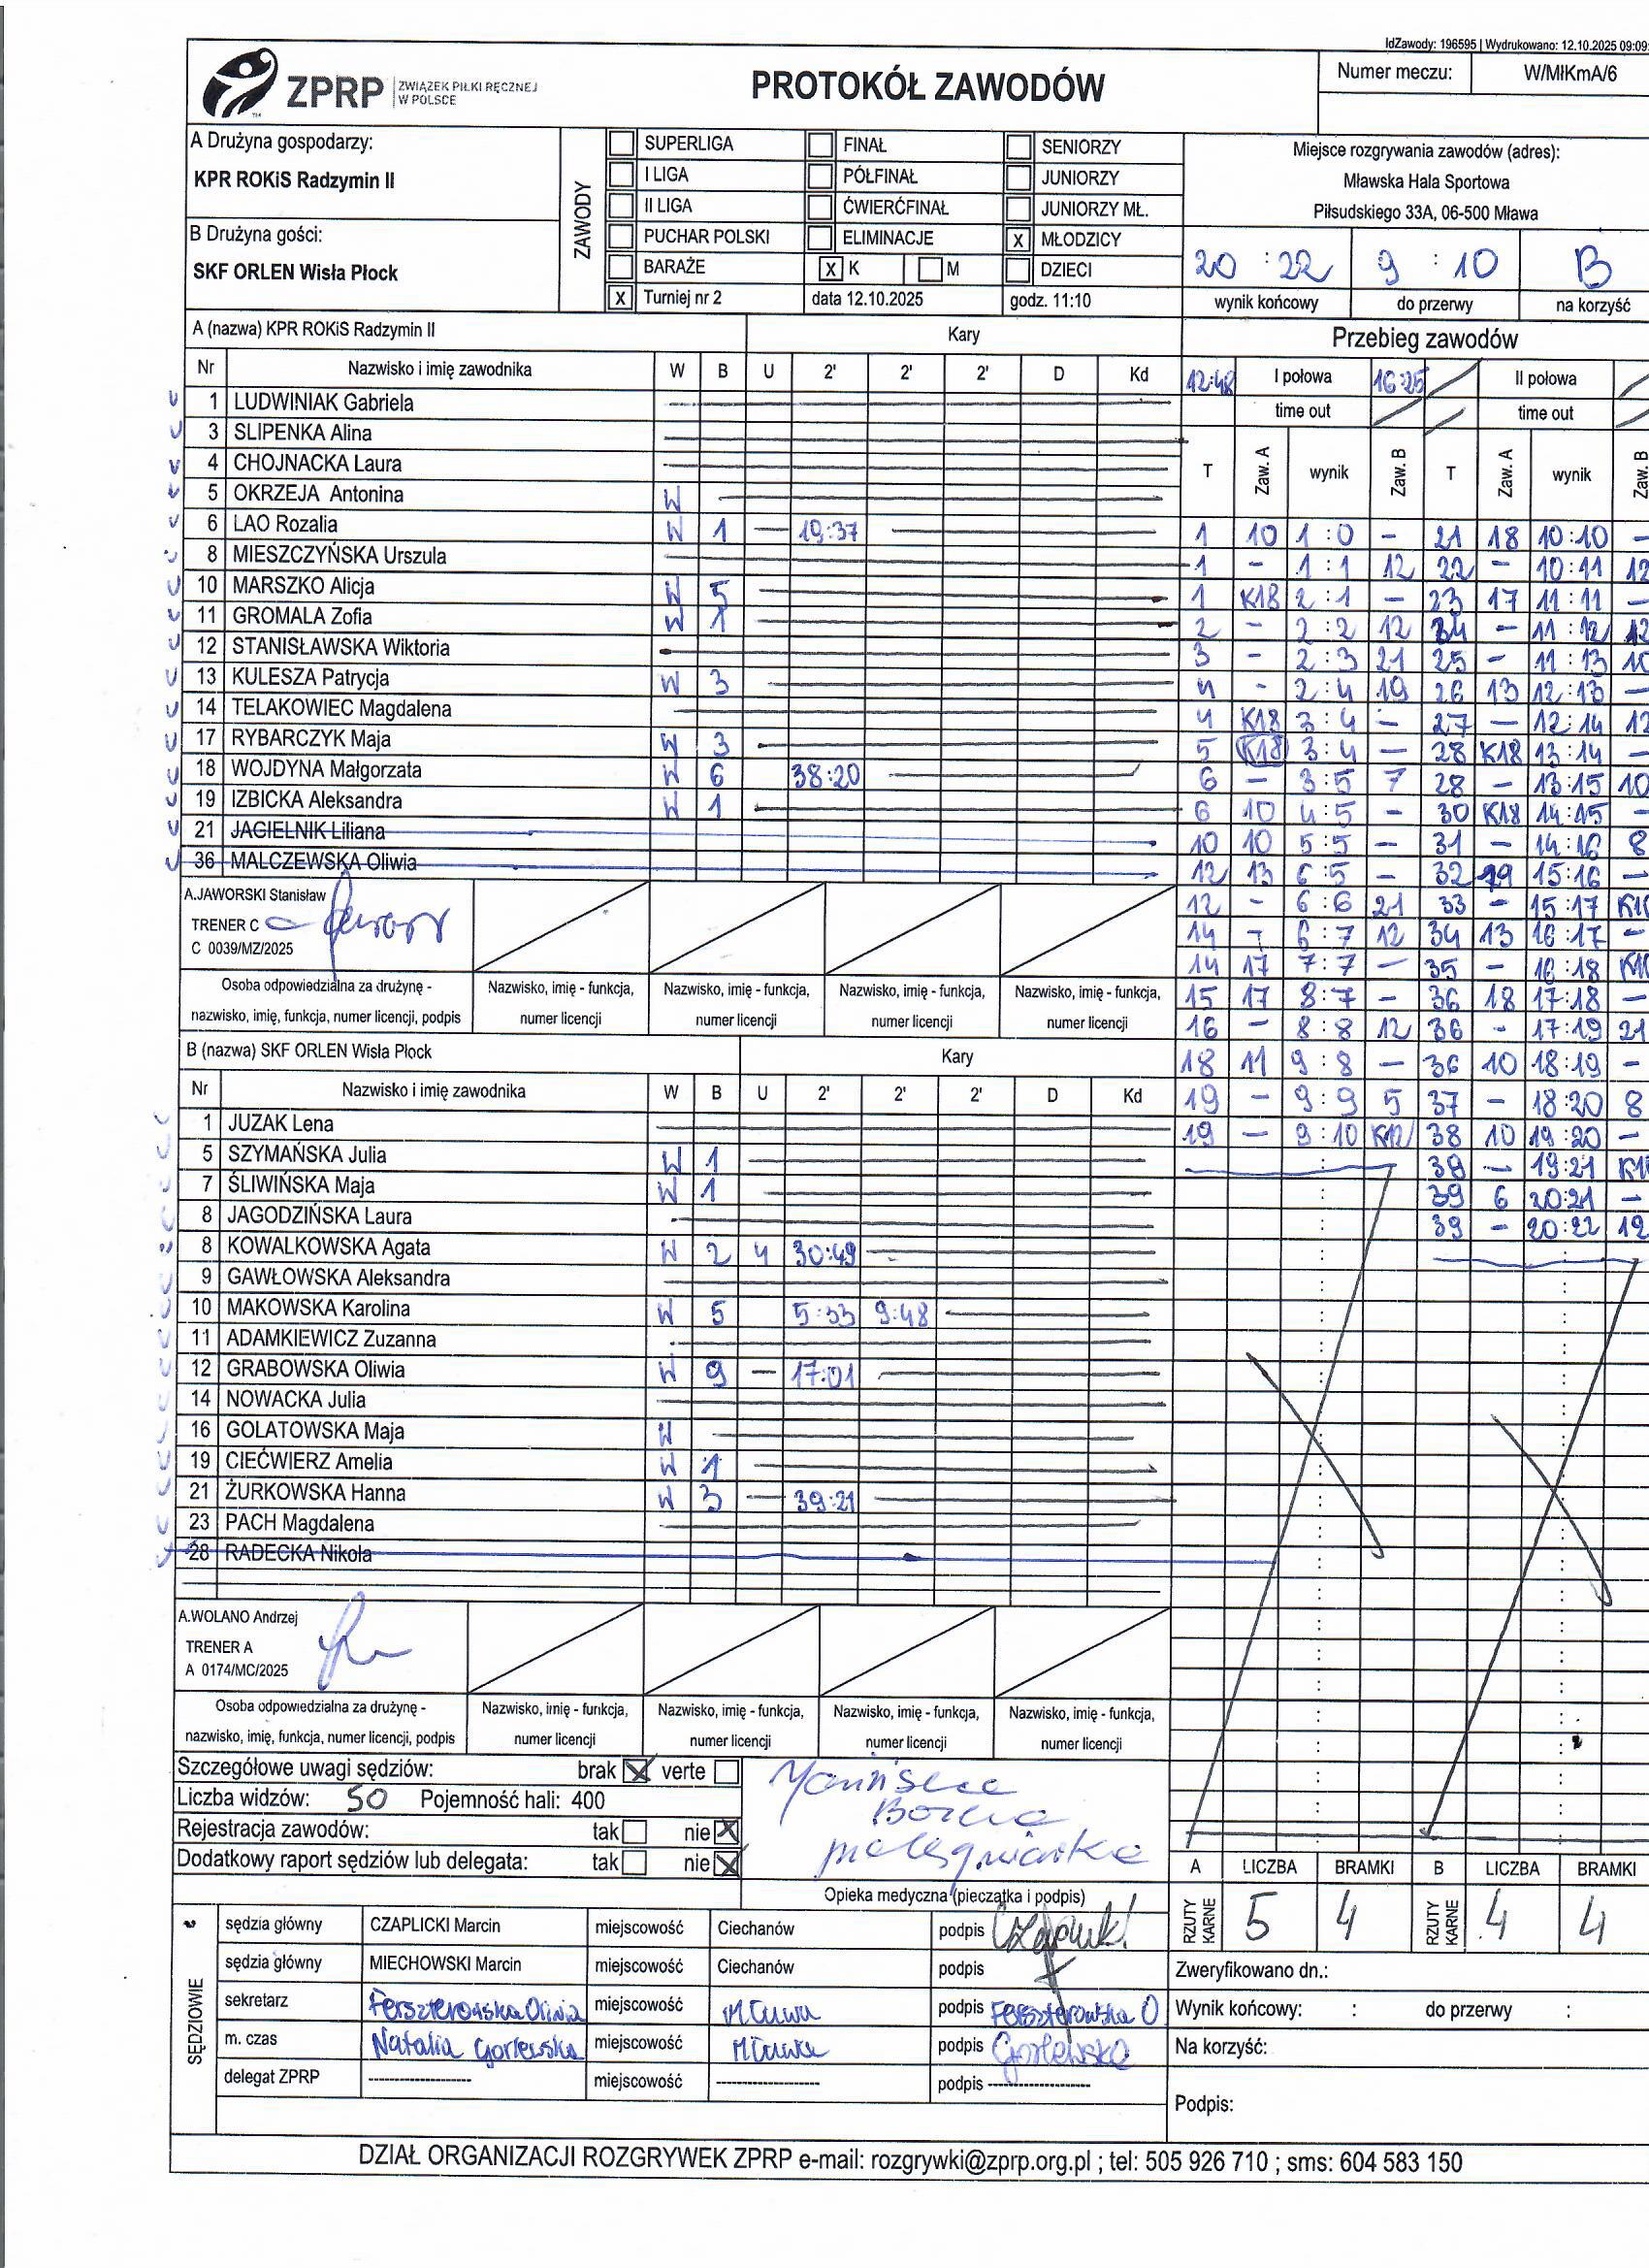 IdZawody: 196595 | Wydrukowano: 12.10.2025 09:09:
ZPRP ZWIĄZEK PIŁKI RĘCZNEJ W POLSCE
PROTOKÓŁ ZAWODÓW
Numer meczu: W/MłKmA/6
A Drużyna gospodarzy:
KPR ROKiS Radzymin II
B Drużyna gości:
SKF ORLEN Wisła Płock
ZAWODY
SUPERLIGA FINAŁ SENIORZY
I LIGA PÓŁFINAŁ JUNIORZY
II LIGA ĆWIERĆFINAŁ JUNIORZY MŁ.
PUCHAR POLSKI ELIMINACJE X MŁODZICY
BARAŻE X K M DZIECI
X Turniej nr 2 data 12.10.2025 godz. 11:10
Miejsce rozgrywania zawodów (adres):
Mławska Hala Sportowa
Piłsudskiego 33A, 06-500 Mława
20 : 22 9 : 10 B
wynik końcowy do przerwy na korzyść
A (nazwa) KPR ROKiS Radzymin II Kary
Nr Nazwisko i imię zawodnika W B U 2' 2' 2' D Kd
1 LUDWINIAK Gabriela
3 SLIPENKA Alina
4 CHOJNACKA Laura
5 OKRZEJA Antonina W
6 LAO Rozalia W 1 — 19:37
8 MIESZCZYŃSKA Urszula
10 MARSZKO Alicja W 5
11 GROMALA Zofia W 1
12 STANISŁAWSKA Wiktoria
13 KULESZA Patrycja W 3
14 TELAKOWIEC Magdalena
17 RYBARCZYK Maja W 3
18 WOJDYNA Małgorzata W 6 38:20
19 IZBICKA Aleksandra W 1
21 JAGIELNIK Liliana
36 MALCZEWSKA Oliwia
A.JAWORSKI Stanisław
TRENER C
C 0039/MZ/2025
Osoba odpowiedzialna za drużynę - nazwisko, imię, funkcja, numer licencji, podpis
Nazwisko, imię - funkcja, numer licencji
Nazwisko, imię - funkcja, numer licencji
Nazwisko, imię - funkcja, numer licencji
Nazwisko, imię - funkcja, numer licencji
B (nazwa) SKF ORLEN Wisła Płock Kary
Nr Nazwisko i imię zawodnika W B U 2' 2' 2' D Kd
1 JUZAK Lena
5 SZYMAŃSKA Julia W 1
7 ŚLIWIŃSKA Maja W 1
8 JAGODZIŃSKA Laura
8 KOWALKOWSKA Agata W 2 4 30:49
9 GAWŁOWSKA Aleksandra
10 MAKOWSKA Karolina W 5 5:33 9:48
11 ADAMKIEWICZ Zuzanna
12 GRABOWSKA Oliwia W 9 — 17:01
14 NOWACKA Julia
16 GOLATOWSKA Maja W
19 CIEĆWIERZ Amelia W 1
21 ŻURKOWSKA Hanna W 3 — 39:21
23 PACH Magdalena
28 RADECKA Nikola
A.WOLANO Andrzej
TRENER A
A 0174/MC/2025
Osoba odpowiedzialna za drużynę - nazwisko, imię, funkcja, numer licencji, podpis
Nazwisko, imię - funkcja, numer licencji
Nazwisko, imię - funkcja, numer licencji
Nazwisko, imię - funkcja, numer licencji
Nazwisko, imię - funkcja, numer licencji
Przebieg zawodów
12:48 I połowa 16:25 II połowa
time out time out
T Zaw. A wynik Zaw. B T Zaw. A wynik Zaw. B
1 10 1:0 – 21 18 10:10 –
1 – 1:1 12 22 – 10:11 12
1 K18 2:1 – 23 17 11:11 –
2 – 2:2 12 24 – 11:12 12
3 – 2:3 21 25 – 11:13 10
4 – 2:4 19 26 13 12:13 –
4 K18 3:4 – 27 – 12:14 12
5 K18 3:4 – 28 K18 13:14 –
6 – 3:5 7 28 – 13:15 10
6 10 4:5 – 30 K18 14:15 –
10 10 5:5 – 31 – 14:16 8
12 13 6:5 – 32 19 15:16 –
12 – 6:6 21 33 – 15:17 K10
14 – 6:7 12 34 13 16:17 –
14 17 7:7 – 35 – 16:18 K10
15 17 8:7 – 36 18 17:18 –
16 – 8:8 12 36 – 17:19 21
18 11 9:8 – 36 10 18:19 –
19 – 9:9 5 37 – 18:20 8
19 – 9:10 K12 38 10 19:20 –
39 – 19:21 K1
39 6 20:21 –
39 – 20:22 12
A LICZBA BRAMKI B LICZBA BRAMKI
RZUTY KARNE 5 4 RZUTY KARNE 4 4
Szczegółowe uwagi sędziów: brak X verte
Liczba widzów: 50 Pojemność hali: 400
Rejestracja zawodów: tak nie X
Dodatkowy raport sędziów lub delegata: tak nie X
pielęgniarka
Opieka medyczna (pieczątka i podpis)
SĘDZIOWIE
sędzia główny CZAPLICKI Marcin miejscowość Ciechanów podpis
sędzia główny MIECHOWSKI Marcin miejscowość Ciechanów podpis
sekretarz Ferszterowska Oliwia miejscowość Mława podpis Ferszterowska O
m. czas Natalia Gorlewska miejscowość Mława podpis Gorlewska
delegat ZPRP -------------------- miejscowość -------------------- podpis --------------------
Zweryfikowano dn.:
Wynik końcowy: : do przerwy :
Na korzyść:
Podpis:
DZIAŁ ORGANIZACJI ROZGRYWEK ZPRP e-mail: rozgrywki@zprp.org.pl ; tel: 505 926 710 ; sms: 604 583 150